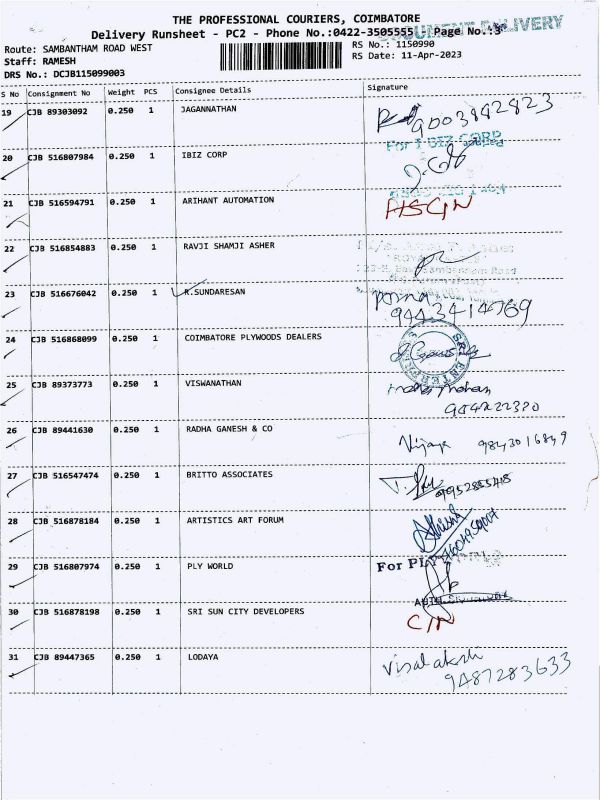 THE PROFESSIONAL COURIERS, COIMBATORE
DOCUMENT DELIVERY
Delivery Runsheet - PC2 - Phone No.:0422-3505555 Page No.:3
Route: SAMBANTHAM ROAD WEST RS No.: 1150990
Staff: RAMESH RS Date: 11-Apr-2023
DRS No.: DCJB115099003
S No Consignment No Weight PCS Consignee Details Signature
19 CJB 89303092 0.250 1 JAGANNATHAN 9003842823
For I BIZ CORP
20 CJB 516807984 0.250 1 IBIZ CORP
For I BIZ CORP
21 CJB 516594791 0.250 1 ARIHANT AUTOMATION
22 CJB 516854883 0.250 1 RAVJI SHAMJI ASHER
23 CJB 516676042 0.250 1 R.SUNDARESAN
9443414769
24 CJB 516868099 0.250 1 COIMBATORE PLYWOODS DEALERS
25 CJB 89373773 0.250 1 VISWANATHAN
26 CJB 89441630 0.250 1 RADHA GANESH & CO Vijaya 9843016849
27 CJB 516547474 0.250 1 BRITTO ASSOCIATES
28 CJB 516878184 0.250 1 ARTISTICS ART FORUM
29 CJB 516807974 0.250 1 PLY WORLD For PLY
30 CJB 516878198 0.250 1 SRI SUN CITY DEVELOPERS
31 CJB 89447365 0.250 1 LODAYA
9487283633